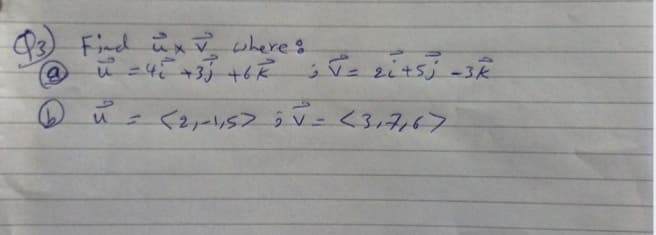 Q3) Find u⃗ x v⃗ where:
(a) u⃗ = 4i⃗ + 3j⃗ + 6k⃗ ; v⃗ = 2i⃗ + 5j⃗ - 3k⃗
(b) u⃗ = <2, -1, 5> ; v⃗ = <3, 7, 6>